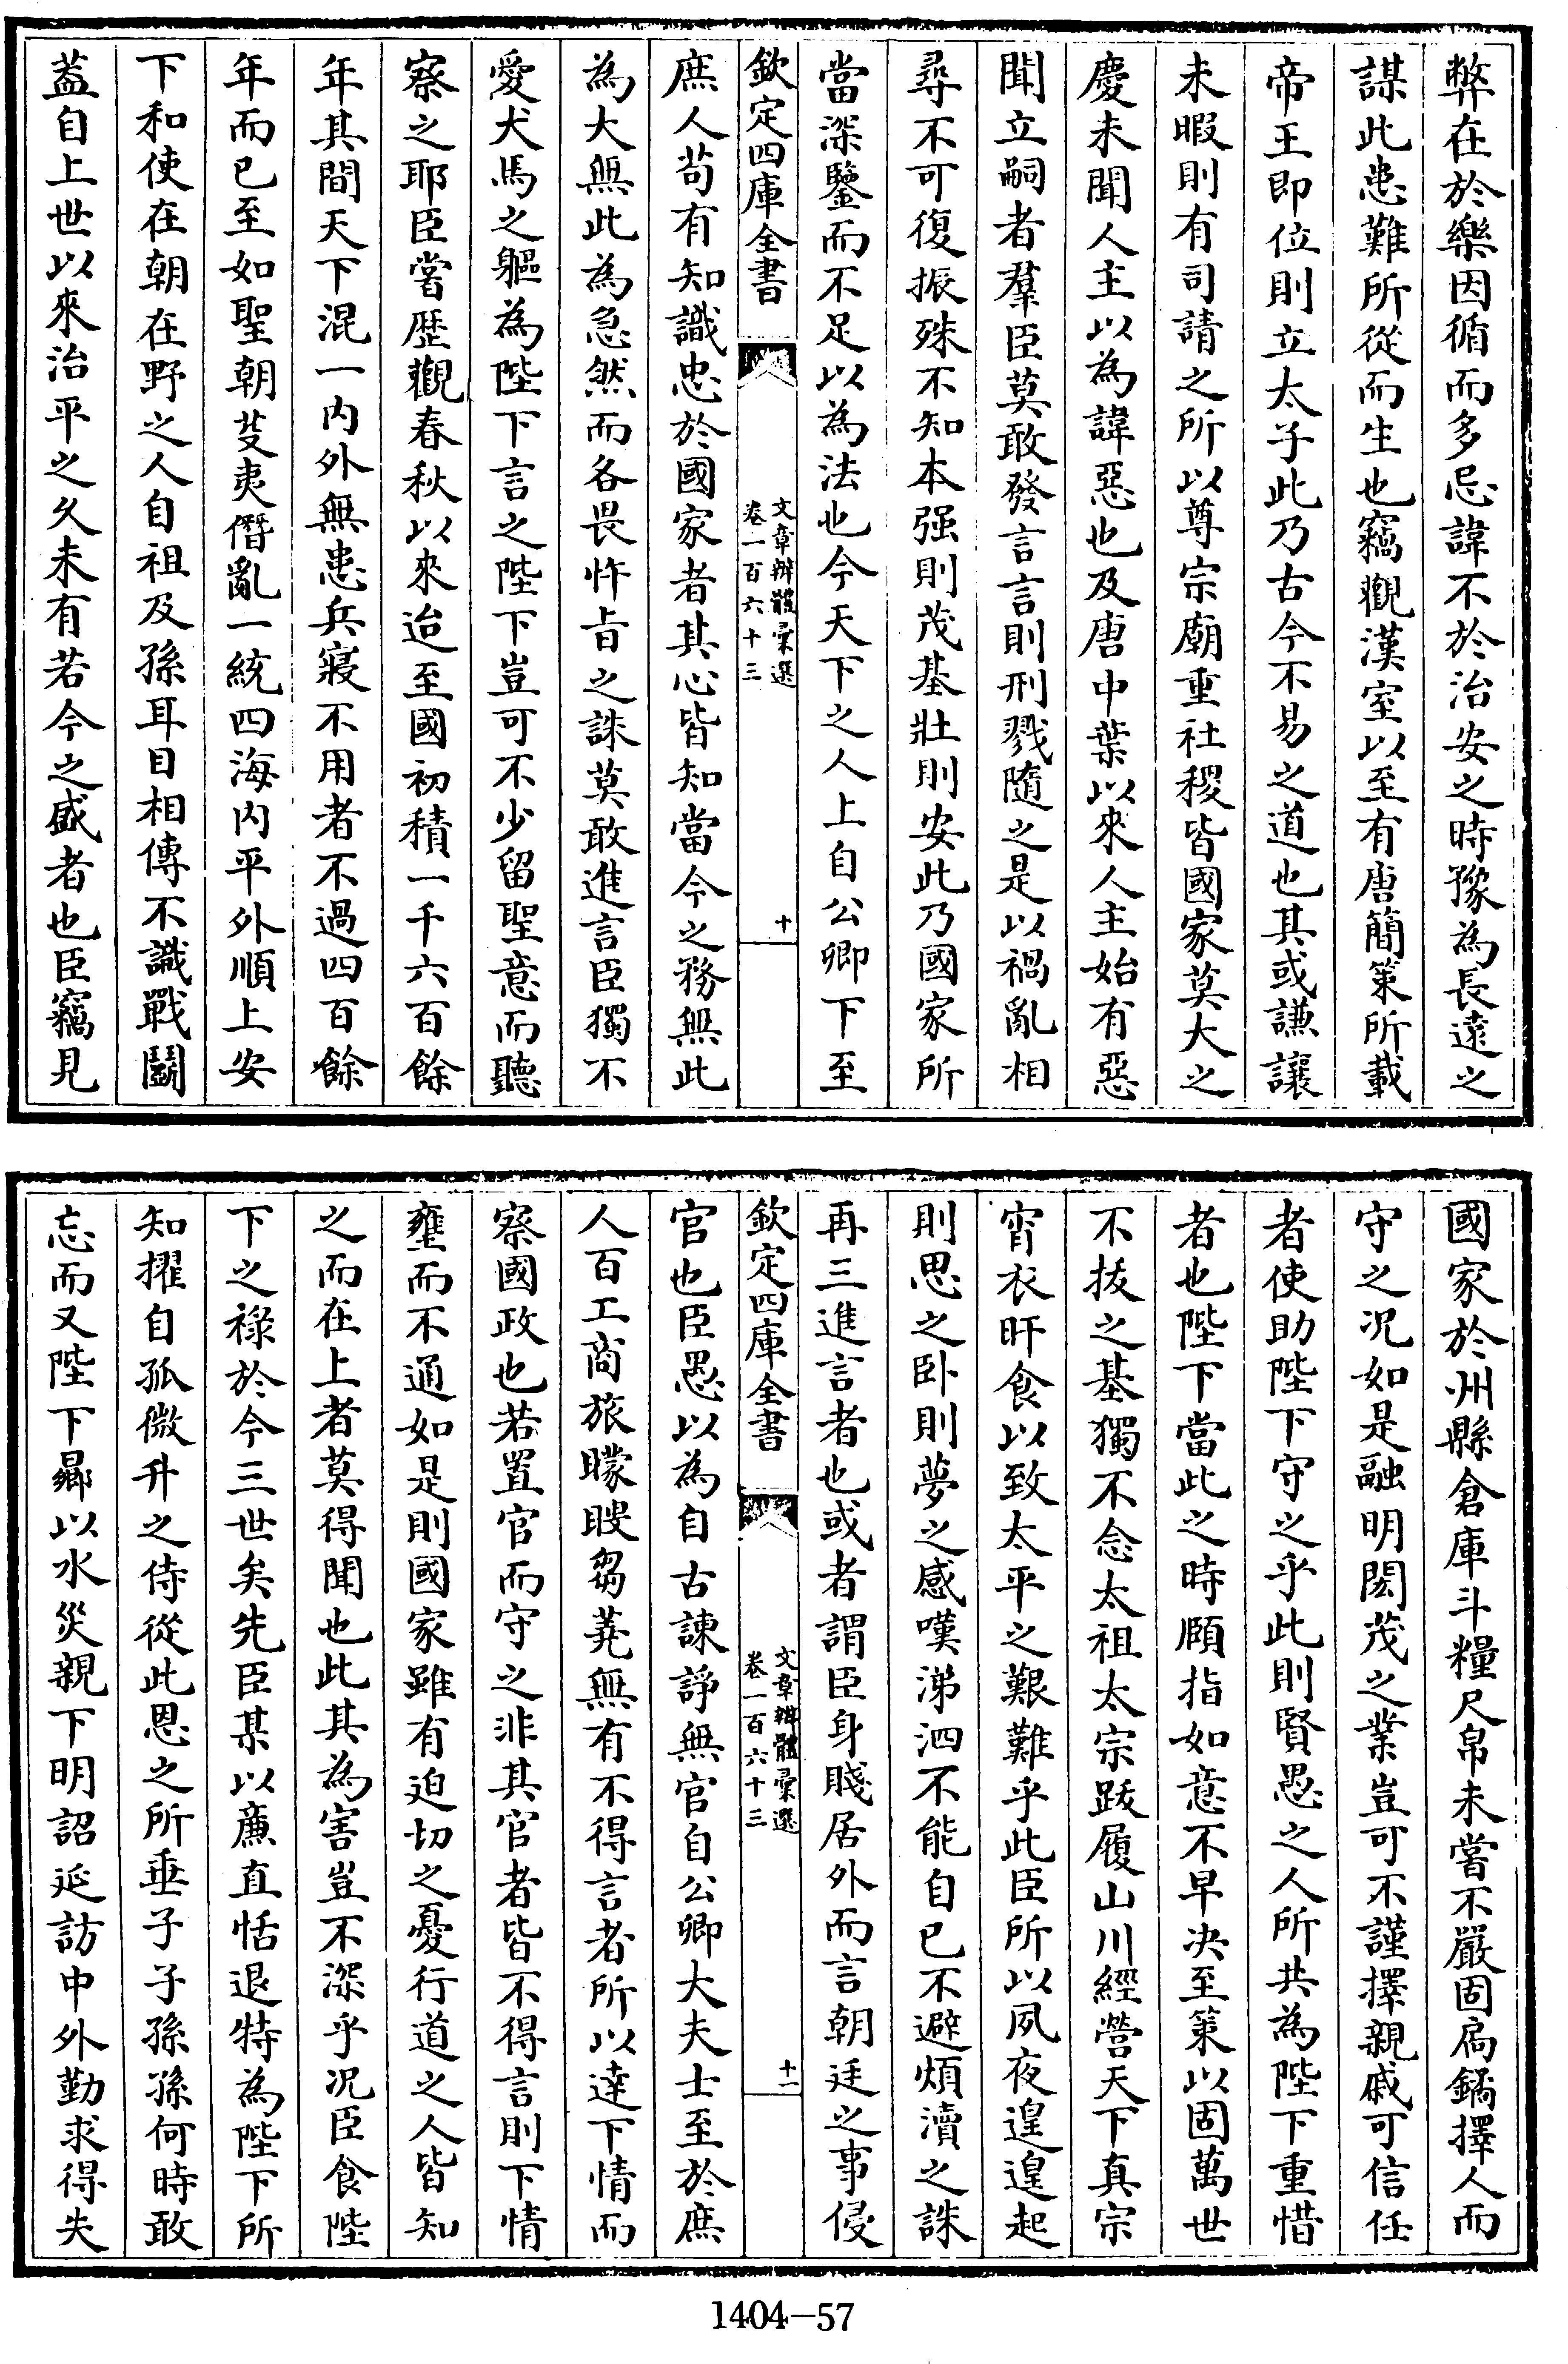 弊在於樂因循而多忌諱不於治安之時豫為長遠之
謀此患難所從而生也竊觀漢室以至有唐簡策所載
帝王即位則立太子此乃古今不易之道也其或謙讓
未暇則有司請之所以尊宗廟重社稷皆國家莫大之
慶未聞人主以為諱惡也及唐中葉以來人主始有惡
聞立嗣者羣臣莫敢發言言則刑戮隨之是以禍亂相
尋不可復振殊不知本强則茂基壯則安此乃國家所
當深鑒而不足以為法也今天下之人上自公卿下至
欽定四庫全書
文章辨體彙選
卷一百六十三
十
庶人茍有知識忠於國家者其心皆知當今之務無此
為大無此為急然而各畏忤㫖之誅莫敢進言臣獨不
愛犬馬之軀為陛下言之陛下豈可不少留聖意而聽
察之耶臣嘗歴觀春秋以來迨至國初積一千六百餘
年其間天下混一内外無患兵寢不用者不過四百餘
年而已至如聖朝芟夷僭亂一統四海内平外順上安
下和使在朝在野之人自祖及孫耳目相傳不識戰鬭
葢自上世以來治平之久未有若今之盛者也臣竊見
國家於州縣倉庫斗糧尺帛未嘗不嚴固扃鐍擇人而
守之况如是融明閎茂之業豈可不謹擇親戚可信任
者使助陛下守之乎此則賢愚之人所共為陛下重惜
者也陛下當此之時頥指如意不早决至策以固萬世
不拔之基獨不念太祖太宗跋履山川經營天下真宗
宵衣旰食以致太平之艱難乎此臣所以夙夜遑遑起
則思之卧則夢之感嘆涕泗不能自已不避煩瀆之誅
再三進言者也或者謂臣身賤居外而言朝廷之事侵
欽定四庫全書
文章辨體彙選
卷一百六十三
十一
官也臣愚以為自古諫諍無官自公卿大夫士至於庶
人百工商旅矇瞍芻蕘無有不得言者所以達下情而
察國政也若置官而守之非其官者皆不得言則下情
壅而不通如是則國家雖有迫切之憂行道之人皆知
之而在上者莫得聞也此其為害豈不深乎况臣食陛
下之祿於今三世矣先臣某以亷直恬退特為陛下所
知擢自孤微升之侍從此恩之所垂子子孫孫何時敢
忘而又陛下曏以水災親下明詔延訪中外勤求得失
1404—57